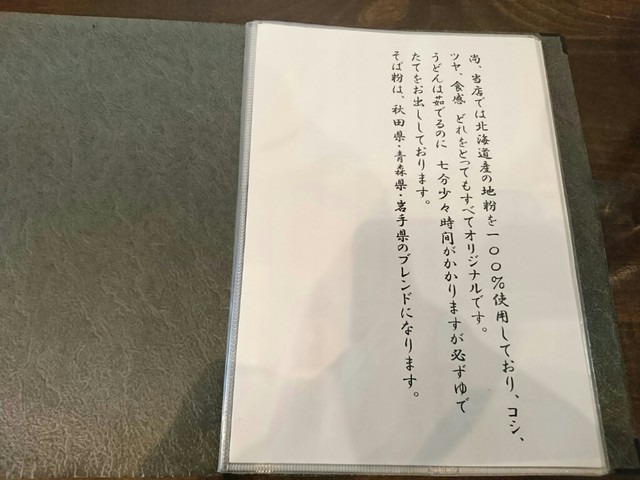 尚、当店では北海道産の地粉を一〇〇%使用しており、コシ、
ツヤ、食感 どれをとってもすべてオリジナルです。
うどんは茹でるのに 七分少々時間がかかりますが必ずゆで
たてをお出ししております。
そば粉は、秋田県・青森県・岩手県のブレンドになります。